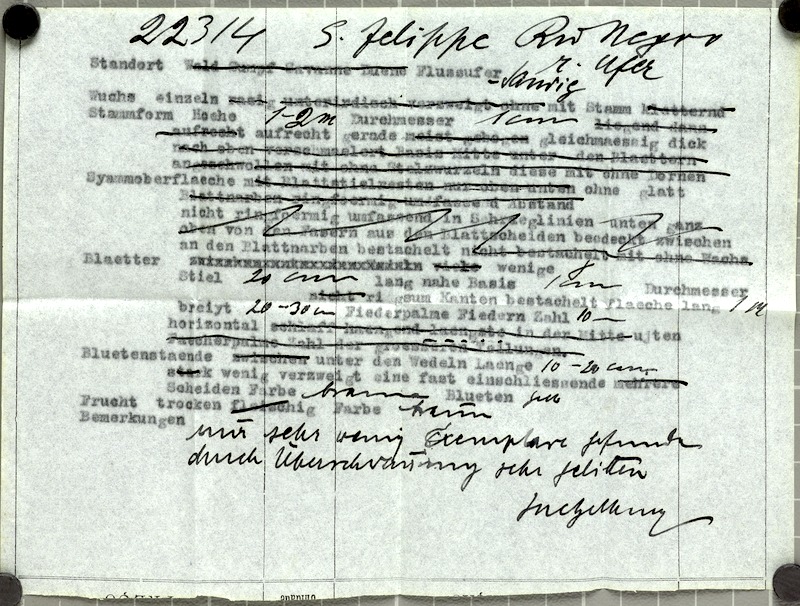 22314 S. Felippe Rio Negro
Standort Wald Sumpf Savanne Duene Flussufer r. Ufer
- sandig
Wuchs einzeln rasig unterirdisch verzweigt ohne mit Stamm kletternd
Stammform Hoehe 1-2m Durchmesser 1 cm liegend dann
aufrecht aufrecht gerade meist gebogen gleichmaessig dick
nach oben verschmalert Basis Mitte unter den Blaettern
angeschwollen mit ohne Stelzwurzeln diese mit ohne Dornen
Syammoberflaeche mit Blattstielresten nur oben unten ohne glatt
Blattnarben ringfoermig umfassend Abstand
nicht ringfoermig umfassend in Schraeglinien unten ganz
oben von den Fasern aus den Blattscheiden bedeckt zwischen
an den Blattnarben bestachelt nicht bestachelt mit ohne Wachs
Blaetter viele wenige 8
Stiel 20 cm lang nahe Basis 1 cm Durchmesser
nicht ri g zum Kanten bestachelt flaeche lang 1 m
breiyt 20-30cm Fiederpalme Fiedern Zahl 10
horizontal schlaff haengend laengste in der Mitte ujten
Faecherpalme Zahl der
Bluetenstaende zwischen unter den Wedeln Laenge 10-20 cm
stark wenig verzweigt eine fast einschliessende mehrere
Scheiden Farbe braun Blueten gelb
Frucht trocken fleischig Farbe braun
Bemerkungen
nur sehr wenig Exemplare gefunden
durch Überschwämmung sehr gelitten